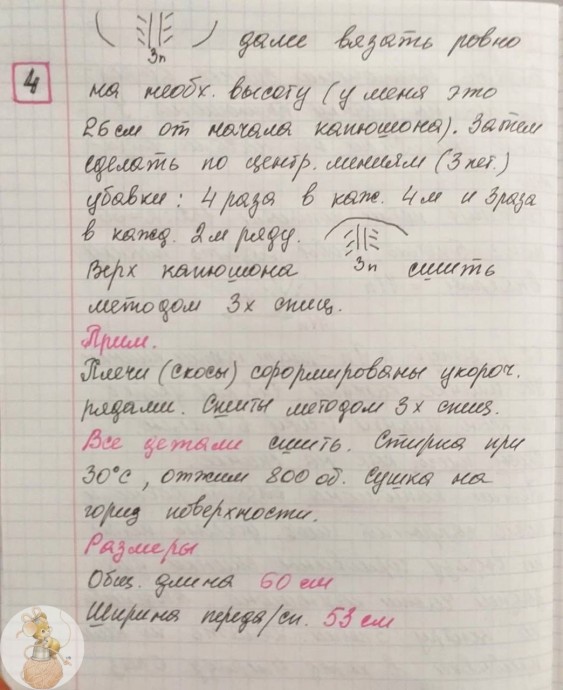 3п
далее вязать ровно
4
на необх. высоту (у меня это
26 см от начала капюшона). Затем
сделать по центр. линиям (3 пет.)
убавки: 4 раза в каж. 4м и 3 раза
в кажд. 2м ряду.
3п
Верх капюшона сшить
методом 3х спиц.
Прим.
Плечи (скосы) сформированы укороч.
рядами. Сшиты методом 3х спиц.
Все детали сшить. Стирка при
30°С, отжим 800 об. Сушка на
гориз поверхности.
Размеры
Общ. длина 60 см
Ширина переда/сп. 53 см